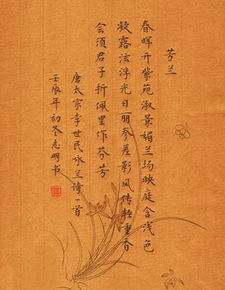 芳兰
春晖开紫苑淑景媚兰场映庭含浅色
凝露泫浮光日丽参差影风传轻重香
会须君子折佩里作芬芳
唐太宗李世民咏兰诗一首
壬辰年初冬志明书